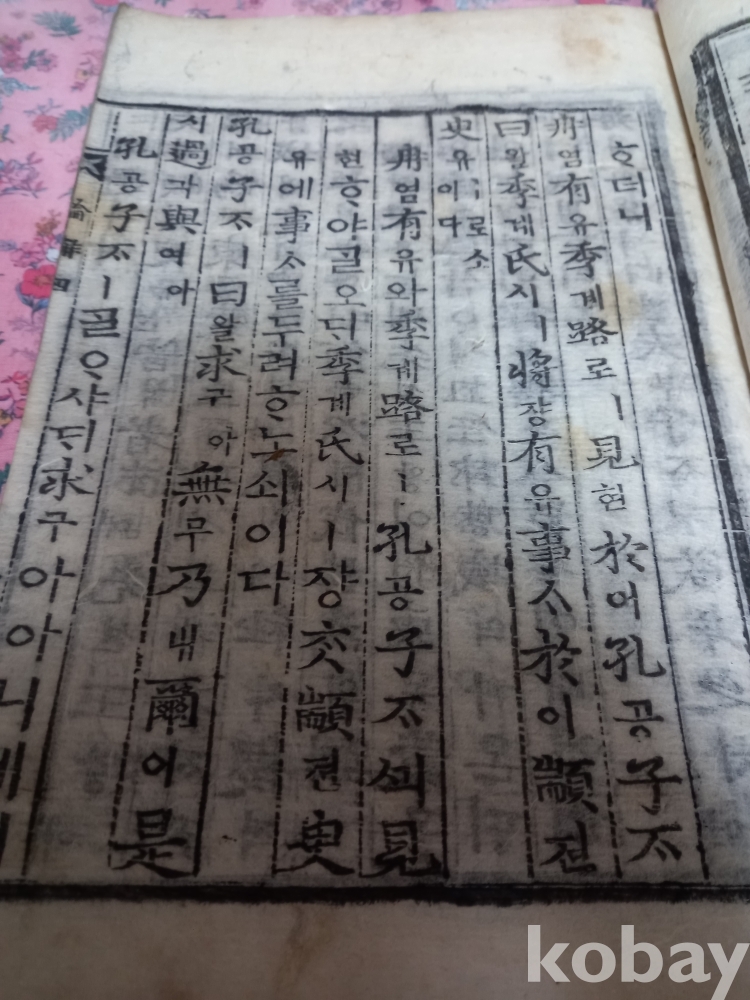 ᄒᆞ더니
冉염有유季계路로ㅣ見현於어孔공子ᄌᆞ
曰왈季계氏시ㅣ將쟝有유事ᄉᆞ於어顓젼
臾유ㅣ로소이다
冉염有유와季계路로ㅣ孔공子ᄌᆞᄭᅴ見
현ᄒᆞ야ᄀᆞᆯ오ᄃᆡ季계氏시ㅣ쟝ᄎᆞᆺ顓젼臾
유에事ᄉᆞ를두려ᄒᆞ노쇠이다
孔공子ᄌᆞㅣ曰왈求구아無무乃내爾이是
시過과與여아
孔공子ᄌᆞㅣᄀᆞᆯᄋᆞ샤ᄃᆡ求구아아니네
論語 四
kobay